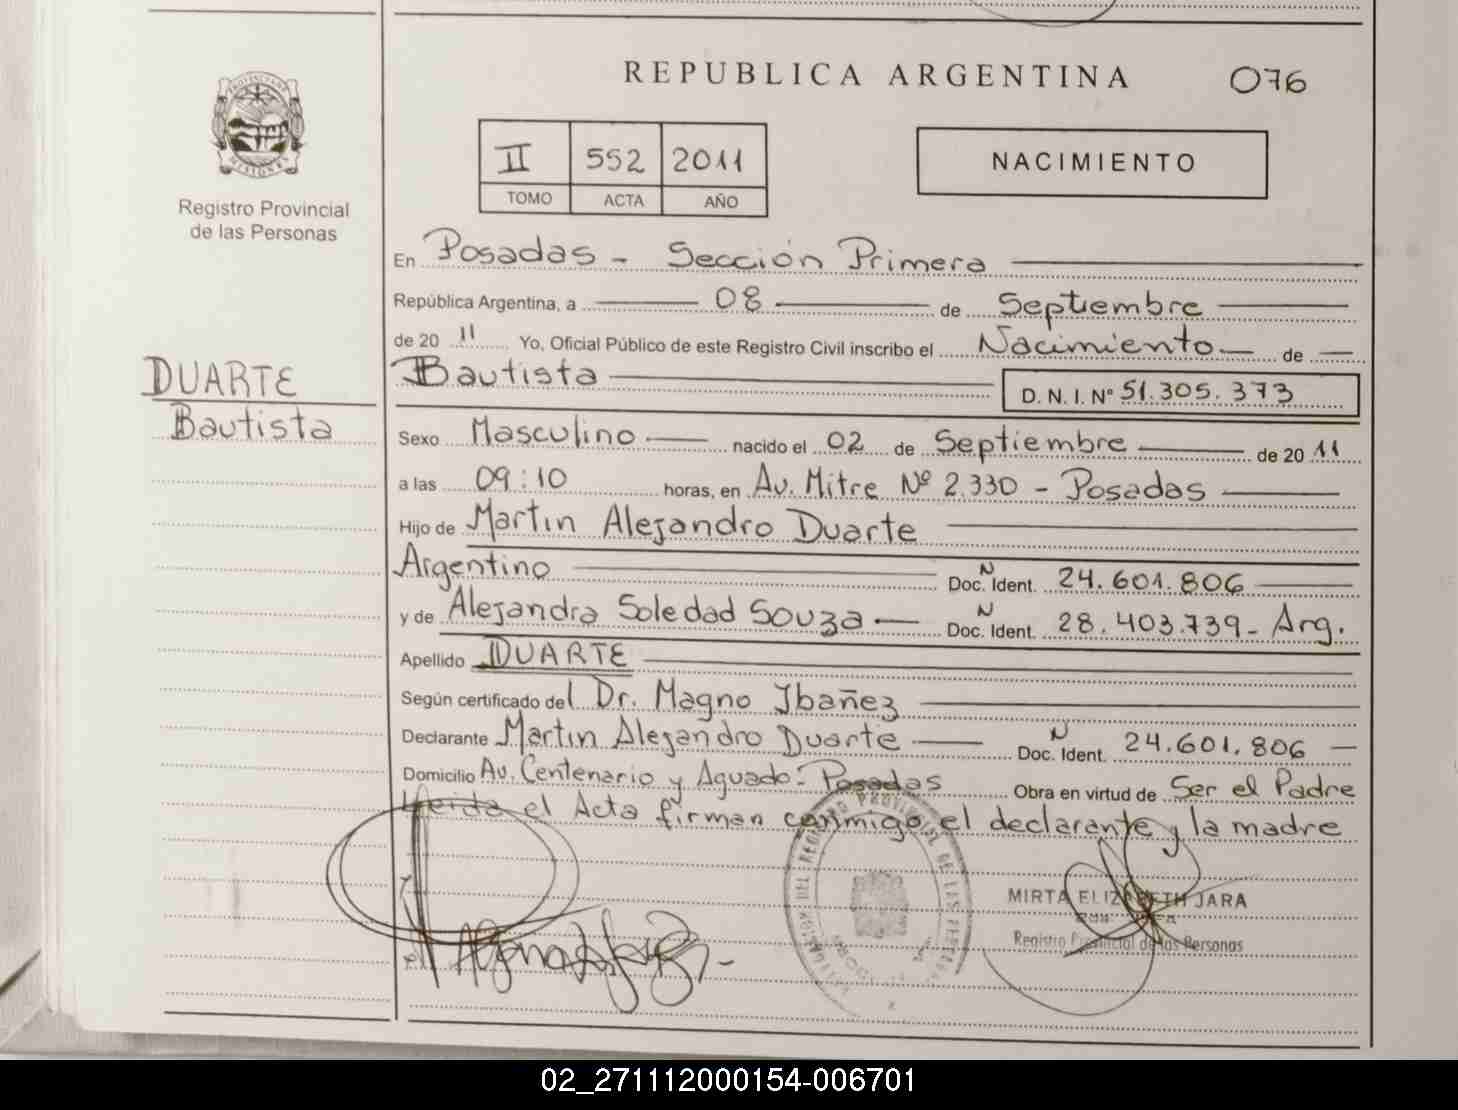 REPUBLICA ARGENTINA 076
PROVINCIA DE
MISIONES
Registro Provincial
de las Personas
II 552 2011
TOMO ACTA AÑO
NACIMIENTO
En Posadas - Sección Primera
República Argentina, a 08 de Septiembre
de 20 11 Yo, Oficial Público de este Registro Civil inscribo el Nacimiento de
Bautista D. N. I. Nº 51.305.373
DUARTE
Bautista
Sexo Masculino nacido el 02 de Septiembre de 20 11
a las 09:10 horas, en Av. Mitre Nº 2.330 - Posadas
Hijo de Martin Alejandro Duarte
Argentino Doc. N Ident. 24.601.806
y de Alejandra Soledad Souza Doc. N Ident. 28.403.739- Arg.
Apellido DUARTE
Según certificado del Dr. Magno Ibañez
Declarante Martin Alejandro Duarte Doc. N Ident. 24.601.806
Domicilio Av. Centenario y Aguado - Posadas Obra en virtud de Ser el Padre
Leida el Acta firman conmigo el declarante y la madre
REGISTRO PROVINCIAL DE LAS PERSONAS
MIRTA ELIZABETH JARA
Registro Provincial de las Personas
02_271112000154-006701